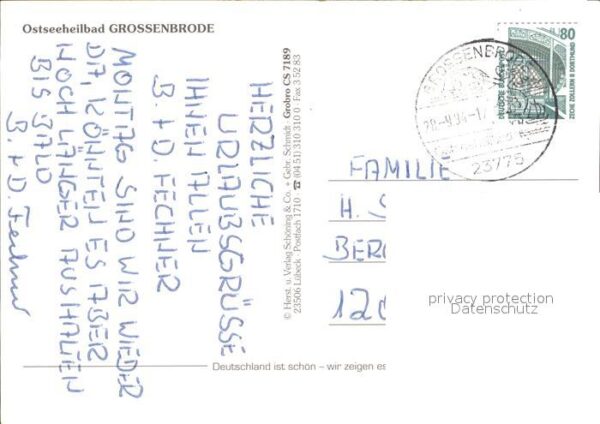 Ostseeheilbad GROSSENBRODE
HERZLICHE
URLAUBSGRÜSSE
IHNEN ALLEN
B. + D. FECHNER
MONTAG SIND WIR WIEDER
DA, KÖNNTEN ES ABER
NOCH LÄNGER AUSHALTEN
BIS BALD
B. + D. Fechner
© Herst. u. Verlag Schöning & Co. + Gebr. Schmidt · Grobro CS 7189
23506 Lübeck · Postfach 1710 · ☎ (04 51) 310 310 0 · Fax 3 52 83
80
DEUTSCHE
ZECHE ZOLLERN II DORTMUND
GROSSENBRODE
23775
FAMILIE
H. S
BER
12
privacy protection
Datenschutz
Deutschland ist schön – wir zeigen es